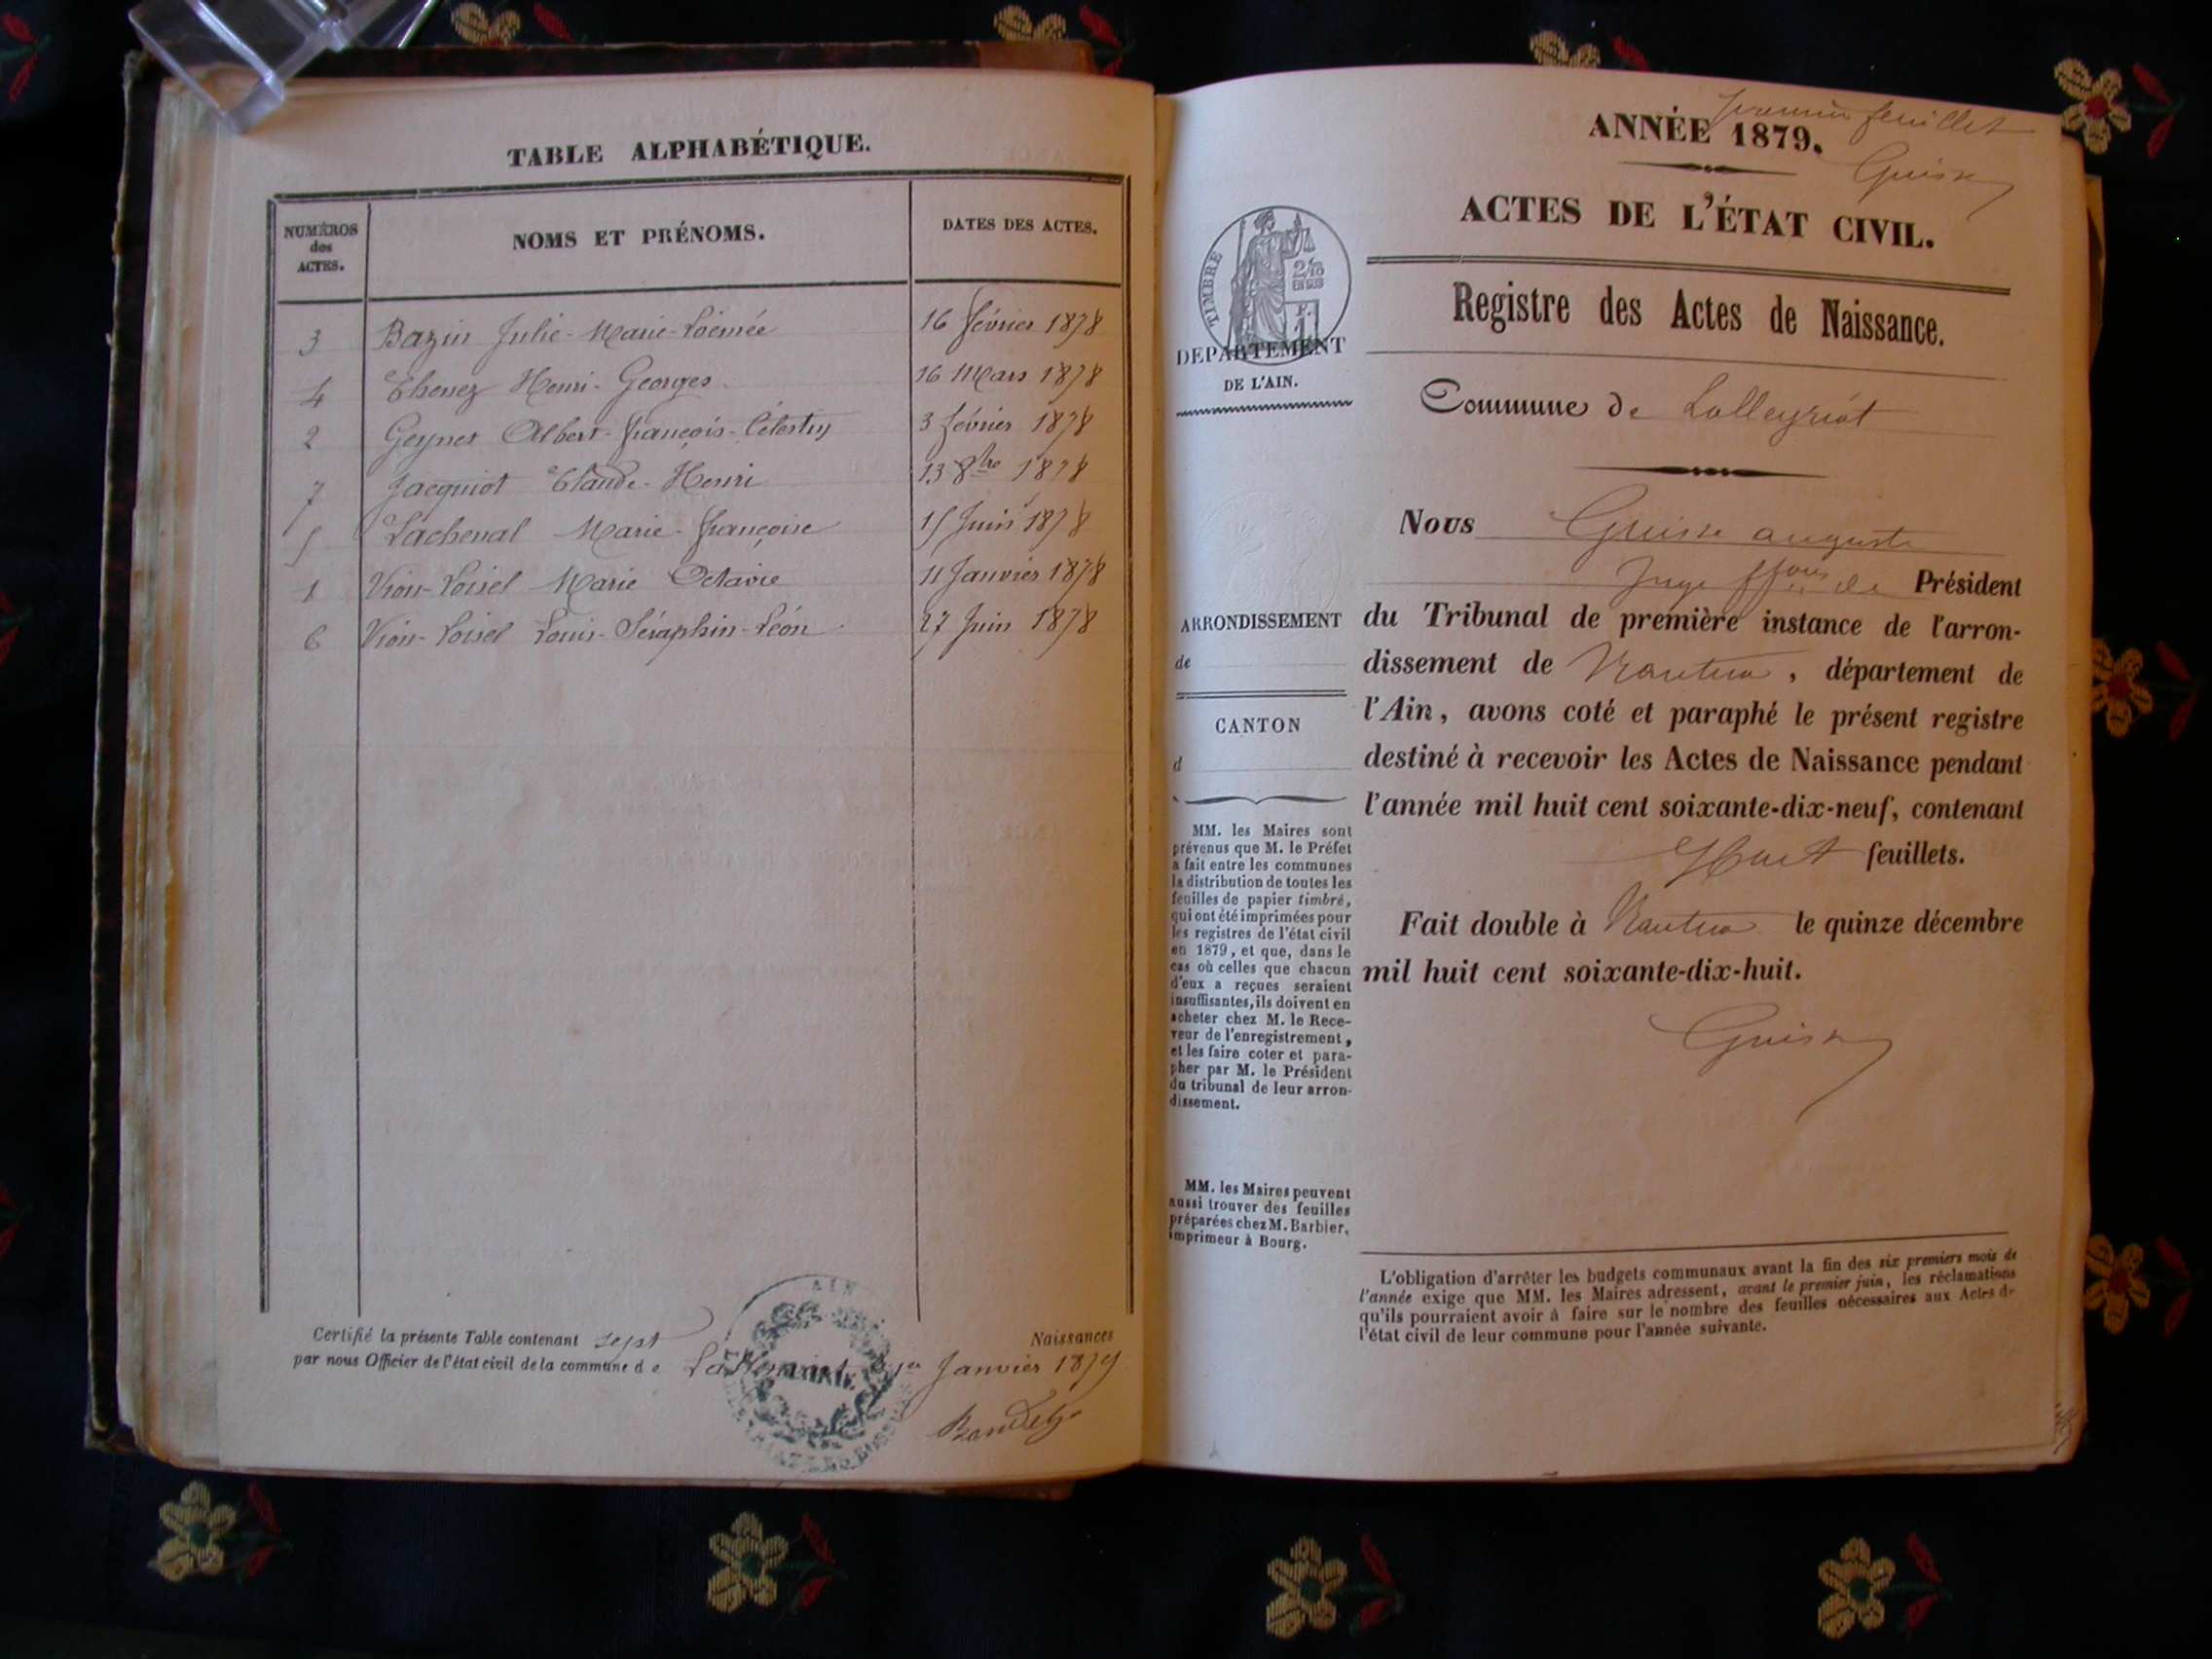 TABLE ALPHABÉTIQUE.
NUMÉROS
des
ACTES.
NOMS ET PRÉNOMS.
DATES DES ACTES.
3 Bazin Julie-Marie- 16 février 1878
4 Henri-Georges 16 Mars 1878
2 Albert-françois-Célestin 3 février 1878
7 Jacquiot Claude-Henri 13 8bre 1878
5 Lachenal Marie-françoise 15 Juin 1878
1 Vion-Loisel Marie Octavie 11 Janvier 1878
6 Vion-Loisel Louis-Séraphin-Léon 27 Juin 1878
Certifié la présente Table contenant sept Naissances
par nous Officier de l'état civil de la commune de Lalleyriat 1er Janvier 1879
AIN
MAIRIE
ANNÉE 1879.
premier feuillet
ACTES DE L'ÉTAT CIVIL.
Registre des Actes de Naissance.
Commune de Lalleyriat
Nous auguste
Juge ffons de Président
du Tribunal de première instance de l'arron-
dissement de Nantua, département de
l'Ain, avons coté et paraphé le présent registre
destiné à recevoir les Actes de Naissance pendant
l'année mil huit cent soixante-dix-neuf, contenant
Huit feuillets.
Fait double à Nantua le quinze décembre
mil huit cent soixante-dix-huit.
L'obligation d'arrêter les budgets communaux avant la fin des six premiers mois de
l'année exige que MM. les Maires adressent, avant le premier juin, les réclamations
qu'ils pourraient avoir à faire sur le nombre des feuilles nécessaires aux Actes de
l'état civil de leur commune pour l'année suivante.
TIMBRE
2/10
EN SUS
F.
1
DEPARTEMENT
DE L'AIN.
ARRONDISSEMENT
de
CANTON
d
MM. les Maires sont
prévenus que M. le Préfet
a fait entre les communes
la distribution de toutes les
feuilles de papier timbré,
qui ont été imprimées pour
les registres de l'état civil
en 1879, et que, dans le
cas où celles que chacun
d'eux a reçues seraient
insuffisantes, ils doivent en
acheter chez M. le Rece-
veur de l'enregistrement,
et les faire coter et para-
pher par M. le Président
du tribunal de leur arron-
dissement.
MM. les Maires peuvent
aussi trouver des feuilles
préparées chez M. Barbier,
imprimeur à Bourg.